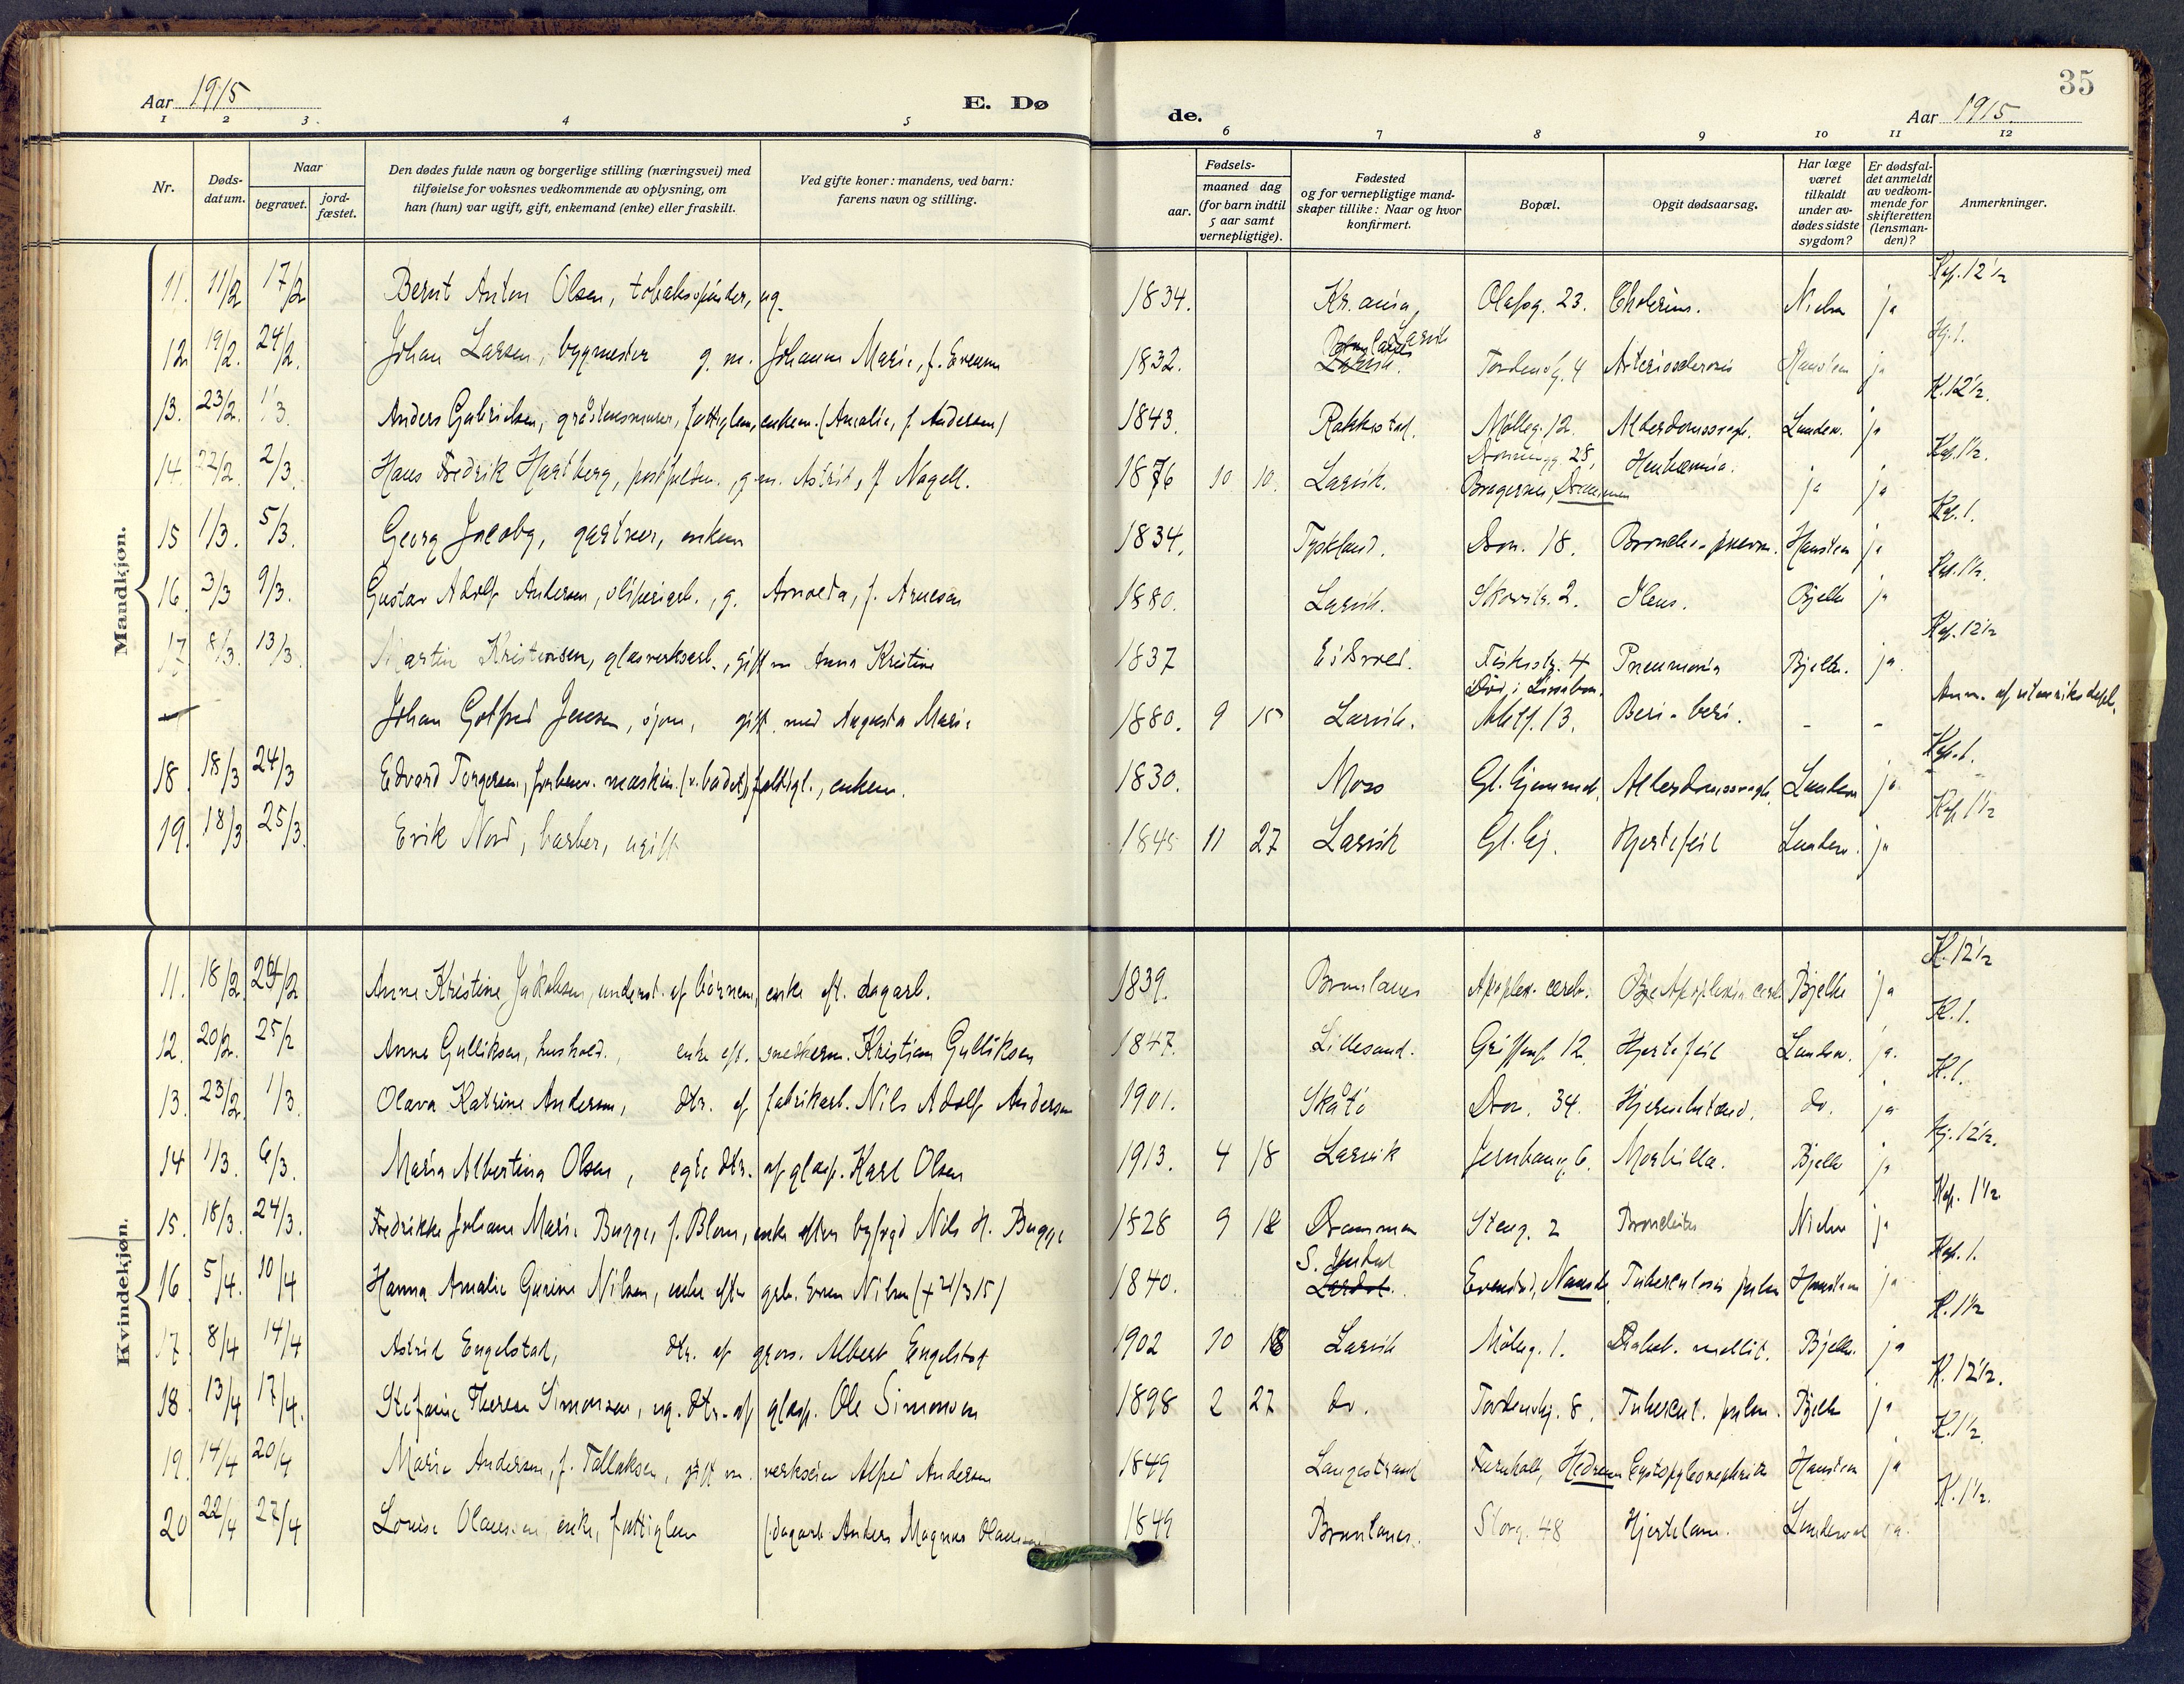 35
Aar 1915 E. Dø de. Aar 1915.
1 2 3. 4 5 6 7 8 9 10 11 12
Nr. Døds-datum. Naar begravet. jord-fæstet. Den dødes fulde navn og borgerlige stilling (næringsvei) med tilføielse for voksnes vedkommende av oplysning, om han (hun) var ugift, gift, enkemand (enke) eller fraskilt. Ved gifte koner: mandens, ved barn: farens navn og stilling. Fødsels- aar. maaned dag (for barn indtil 5 aar samt vernepligtige). Fødested og for vernepligtige mand-skaper tillike: Naar og hvor konfirmert. Bopæl. Opgit dødsaarsag. Har læge været tilkaldt under av-dødes sidste sygdom? Er dødsfal-det anmeldt av vedkom-mende for skifteretten (lensman-den)? Anmerkninger.
Mandkjøn.
11. 11/2 17/2 Bernt Anton Olsen, tobaksspinder, ug. 1834. Kr.ania, Olafsg. 23. Nielsen ja Kap. 12½
12 19/2. 24/2. Johan Larsen, bygmester g. m. Johanne Marie, f. Evensen 1832. Brunlanes Larvik Tordensg. 4 Arteriosclerosis Hansteen ja Kj. 1.
13. 23/2. 1/3. Anders Gabrielsen, gråstensmurer, fattiglem, enkem. (Amalie, f. Andersen) 1843. Rakkestad. Mølleg. 12. Alderdomssvagh. Lundew. ja K. 12½.
14. 22/2. 2/3. Hans Fredrik Hartberg, postfuldm., g. m. Astrid, f. Nagell. 1876 10 10. Larvik. Dronningg. 28, Bragernes, Drammen ja ja Kap. 1½.
15 1/3. 5/3. Georg Jacoby, gartner, enkem 1834. Tyskland. Dron. 18. Broncho-pneum. Hansteen ja Kap. 1.
16. 3/3 9/3. Gustav Adolf Andersen, sliperiarb., g. Arnolda, f. Arnesen 1880. Larvik. Skovstr. 2. Ileus. Bjelke ja Kap. 1½.
17 8/3. 13/3. Martin Kristensen, glasverksarb., gift m Anna Kristine 1837 Eidsvold. Fiskestr. 4 Pneumonia Bjelke. ja. Kap. 12½
— Johan Gotfred Jensen, sjøm., gift med Augusta Marie 1880. 9 15 Larvik. Død i Lissabon. 13. Beri-beri. - - Anm. af utenriksdept.
18. 18/3 24/3 Edvard Torgersen, forhenv. maskin. (v. badet), fattigl., enkem. 1830. Moss Gl.hjemmet. Alderdomssvagh. Lundew ja. Kap. 1.
19. 18/3 25/3. Erik Nord, barber, ugift 1845 11 27 Larvik Gl. hj. Hjertefeil Lundew. ja Kap 1½
Kvindekjøn.
11. 18/2 24/2 Anne Kristine Jakobsen, underst. af børnene, enke eft. dagarb. 1839. Brunlanes Apoplex. cereb. Apoplexia cereb Bjelke ja K. 12½
12. 20/2. 25/2 Anne Gulliksen, hushold., enke eft. snedkerm. Kristian Gulliksen 1847. Lillesand. Griffenf. 12. Hjertefeil Lundew. ja. K. 1.
13. 23/2. 1/3. Olava Katrine Andersen, dtr. af fabrikarb. Nils Adolf Andersen 1901. Skåtø Dron. 34. Hjernebetænd. do. ja K. 1.
14 1/3. 6/3. Maria Albertina Olsen, egte dtr. af glasp. Karl Olsen 1913. 4 18 Larvik Jernbaneg. 6. Morbilla. Bjelke ja Kj. 12½.
15. 18/3. 24/3. Fredrikke Johanne Marie Bugge, f. Blom, enke efter byfogd Nils H. Bugge 1828 9 18 Drammen Steng. 2 Bronchitis Nielsen ja Kap. 1½
16 5/4. 10/4 Hanna Amalie Gurine Nilsen, enke efter grb. Even Nilsen (+ 21/3 15) 1840. Lardal. Nanset Tuberculosis pulm Hansteen ja Kap. 1.
17 8/4 14/4 Astrid Engelstad, dtr. af gros. Albert Engelstad 1902 10 18 Larvik Mølleg. 1. Diabet. mellit. Bjelke. ja K. 1½
18 13/4 17/4. Stefanie Therese Simonsen, ug. dtr. af glasp. Ole Simonsen 1898 2 27 do. Tordenskj. 8. Tubercul. pulm. Bjelke ja K. 12½.
19. 14/4 20/4 Marie Andersen, f. Tallaksen, gift m. verkseier Alfred Andersen 1849 Langestrand Furuholt, Hedrum Cystopyelonephritis Hansteen ja K. 1½.
20 22/4 27/4 Louise Olaussen, enke, fattiglem (dagarb. Anders Magnus Olaussen 1849 Brunlanes. Storg. 48 Hjertelam. Lundewall ja. K. 1½.